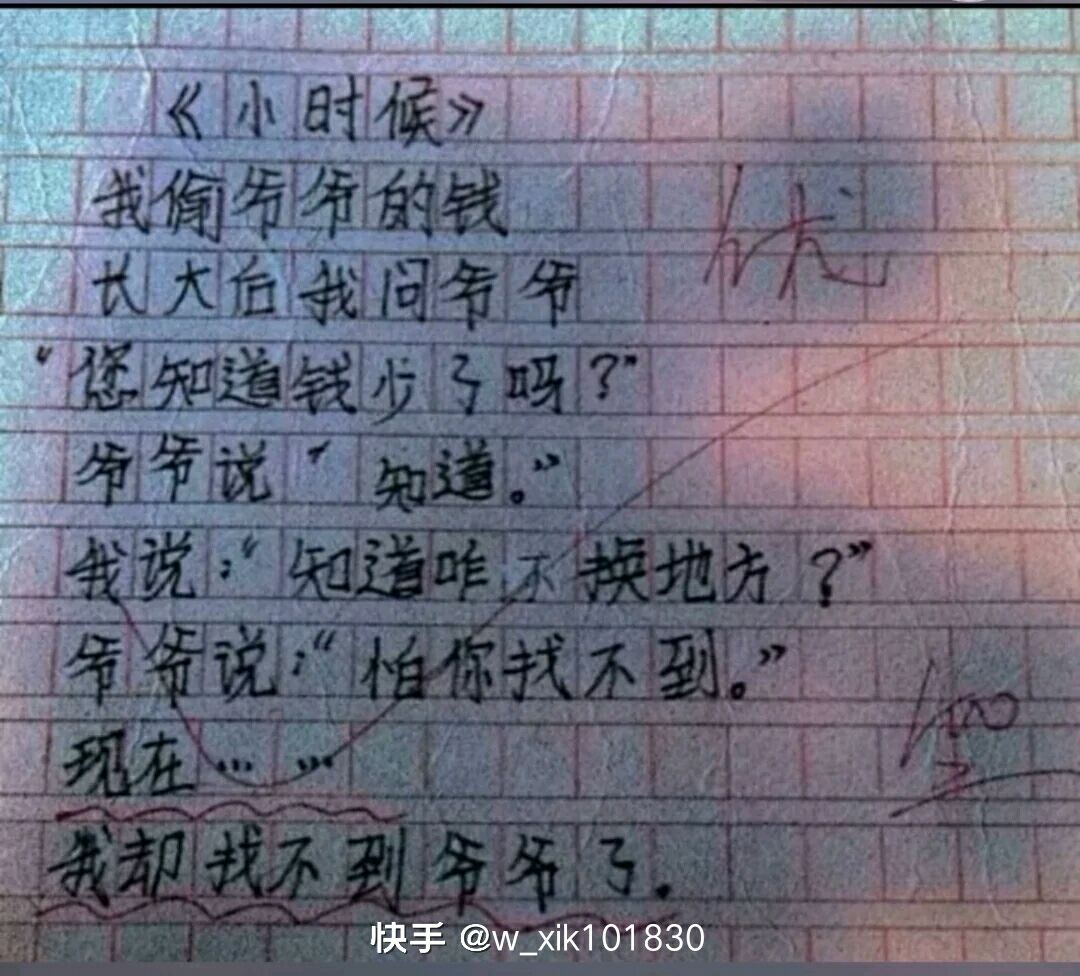 《小时候》
我偷爷爷的钱
优
长大后我问爷爷
"您知道钱少了吗？"
爷爷说"知道。"
我说："知道咋不换地方？"
爷爷说："怕你找不到。"
100
现在……
我却找不到爷爷了。
快手 @w_xik101830